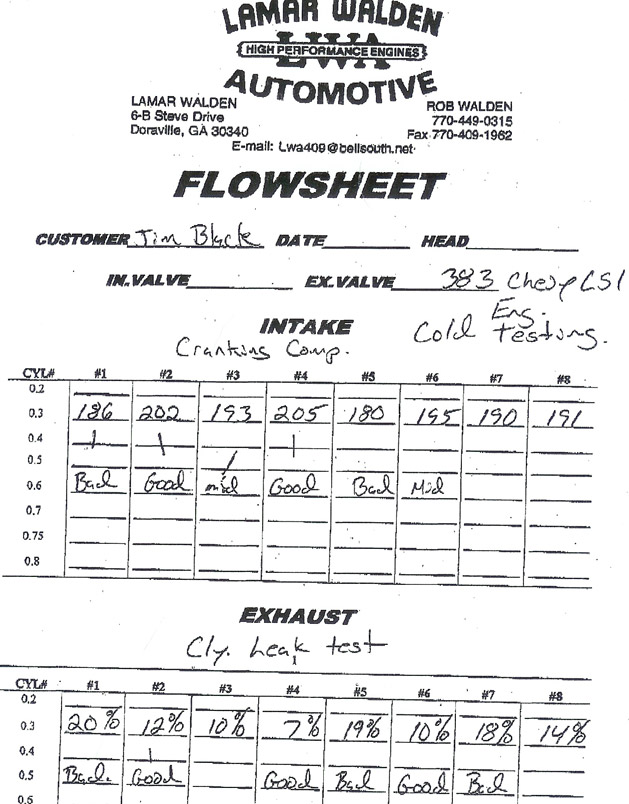 LAMAR WALDEN
LWA
HIGH PERFORMANCE ENGINES
AUTOMOTIVE
LAMAR WALDEN
6-B Steve Drive
Doraville, GA 30340
ROB WALDEN
770-449-0315
Fax 770-409-1962
E-mail: Lwa409@bellsouth.net
FLOWSHEET
CUSTOMER Jim Black DATE HEAD
IN.VALVE EX.VALVE 383 Chevy LS1
Eng.
INTAKE Cold Testing.
Cranking Comp.
CYL# #1 #2 #3 #4 #5 #6 #7 #8
0.2
0.3 186 202 193 205 180 195 190 191
0.4
0.5
0.6 Bad Good mid Good Bad Mid
0.7
0.75
0.8
EXHAUST
Cly. Leak test
CYL# #1 #2 #3 #4 #5 #6 #7 #8
0.2
0.3 20% 12% 10% 7% 19% 10% 18% 14%
0.4
0.5 Bad. Good Good Bad Good Bad
0.6